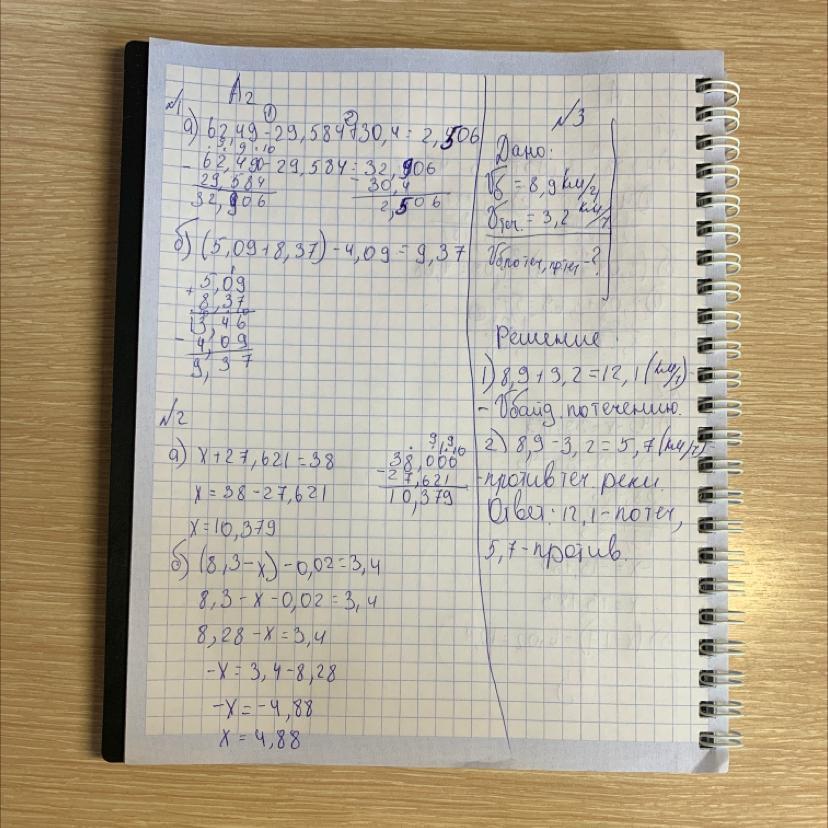 A2
№1
① ②
а) 62,49-29,584-30,4=2,506
62,490-29,584=32,906
- 29,584
32,906
- 30,4
2,506
б) (5,09+8,37)-4,09=9,37
+ 5,09
8,37
13,46
- 4,09
9,37
№2
а) x+27,621=38
x=38-27,621
x=10,379
38,000
- 27,621
10,379
б) (8,3-x)-0,02=3,4
8,3-x-0,02=3,4
8,28-x=3,4
-x=3,4-8,28
-x=-4,88
x=4,88
№3
Дано:
Vб=8,9 км/ч
Vтеч.=3,2 км/ч
Решение
1) 8,9+3,2=12,1(км/ч)-
- Vбайд. по течению.
2) 8,9-3,2=5,7(км/ч)-
-против теч. реки.
Ответ: 12,1-по теч,
5,7-против.